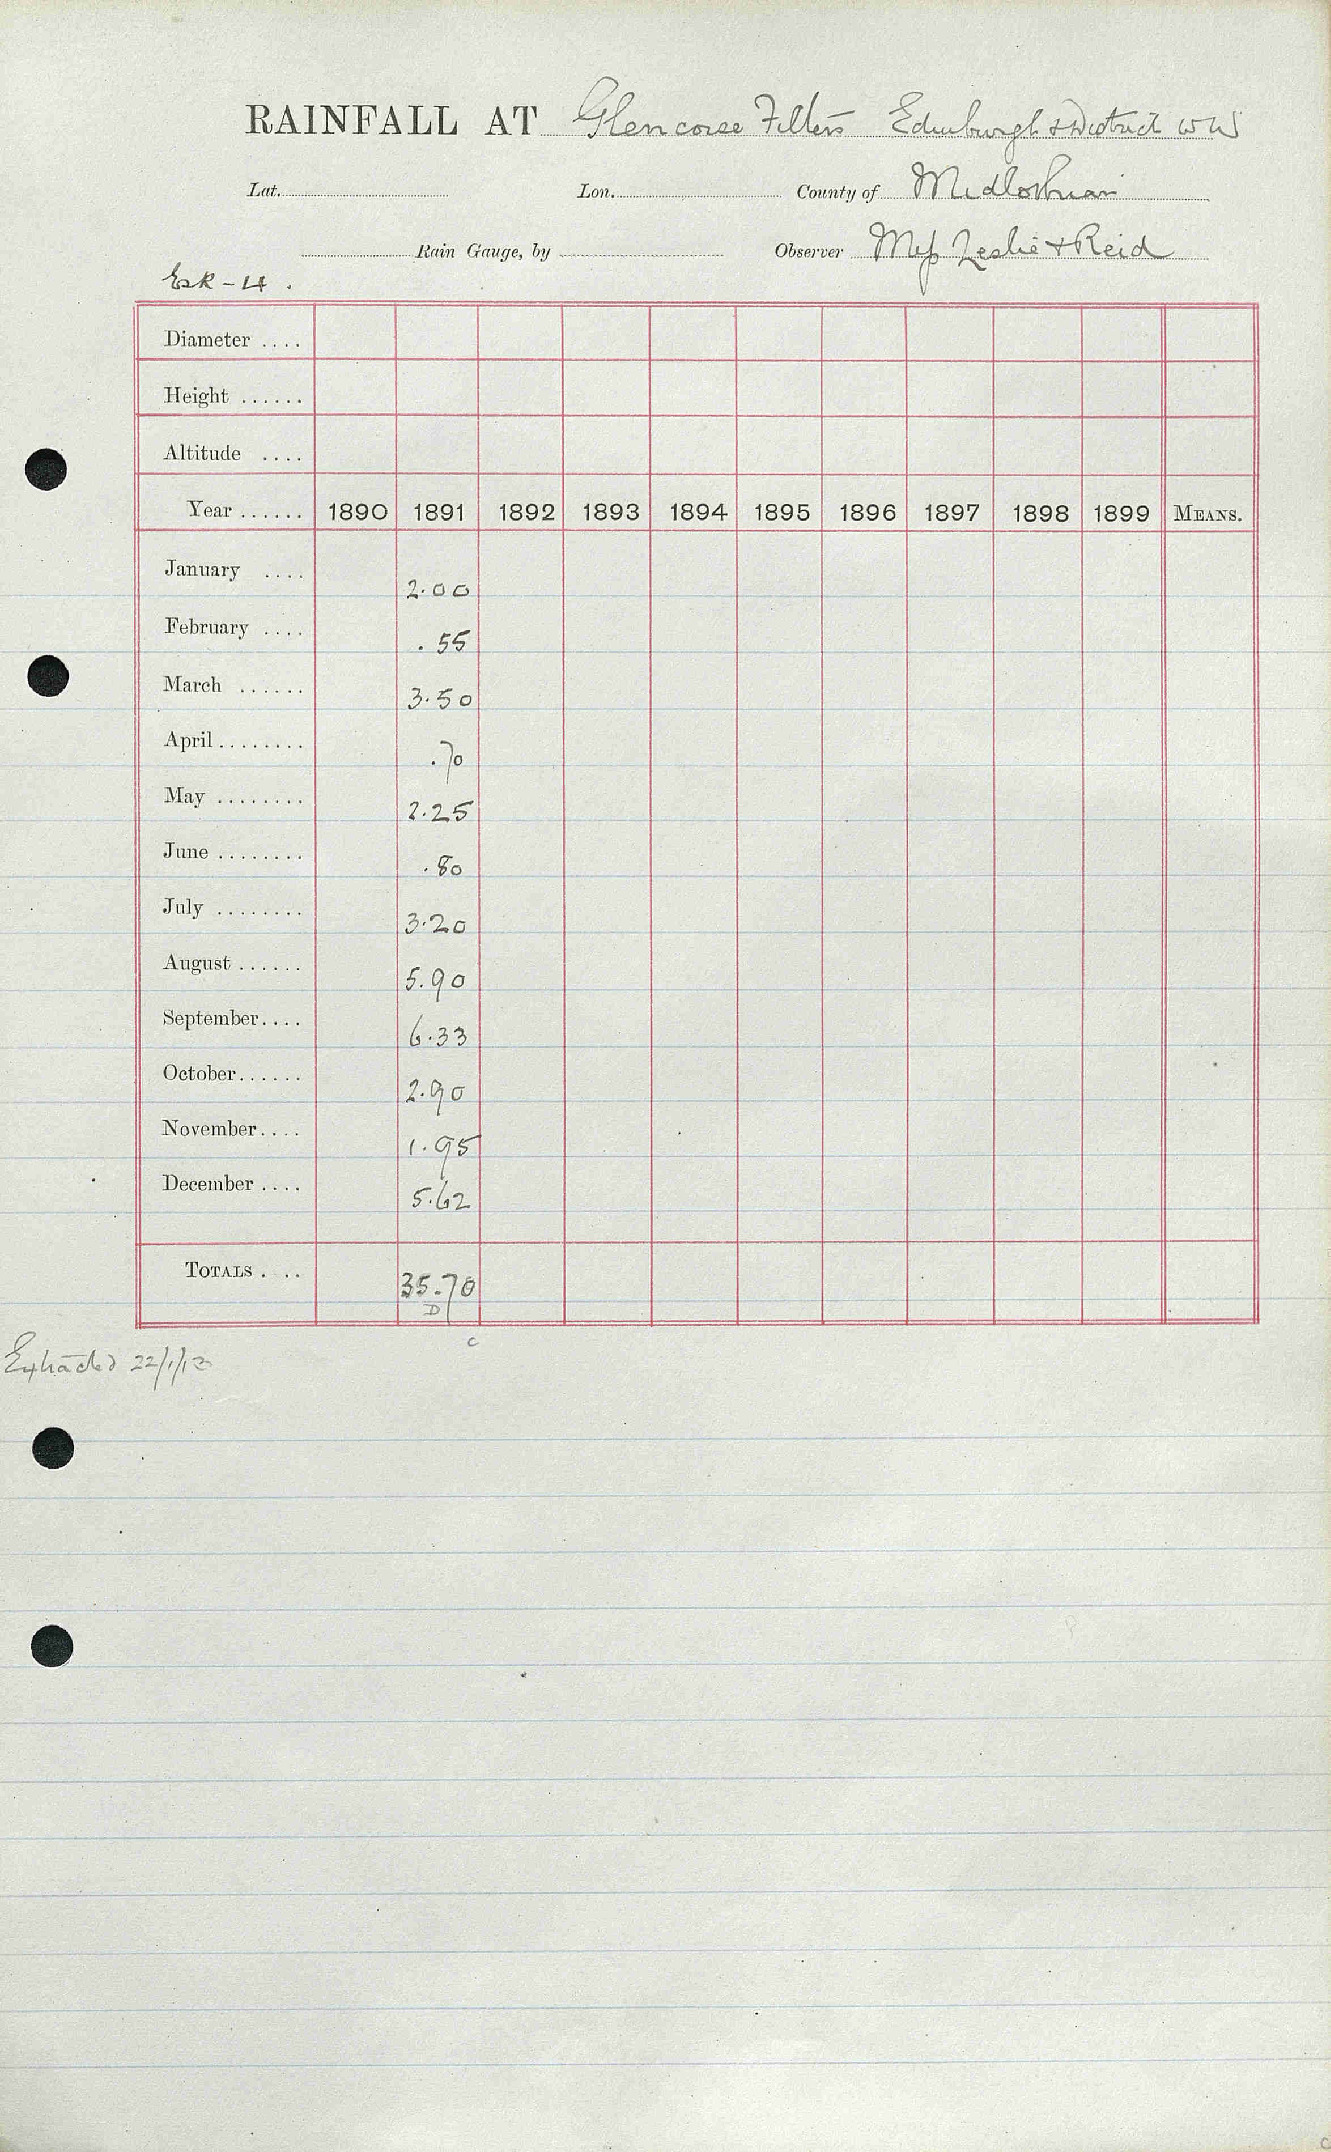 RAINFALL AT Glencorse Filters Edinburgh & District W W
Lat. Lon. County of Midlothian
Rain Gauge, by Observer Mess Leslie & Reid
Esk - 4 .
Diameter ....
Height ......
Altitude ....
Year ...... 1890 1891 1892 1893 1894 1895 1896 1897 1898 1899 MEANS.
January .... 2.00
February .... .55
March ...... 3.50
April ........ .70
May ........ 2.25
June ........ .80
July ........ 3.20
August ...... 5.90
September .... 6.33
October ...... 2.90
November .... 1.95
December .... 5.62
TOTALS .... 35.70
D
C
Extracted 22/1/13